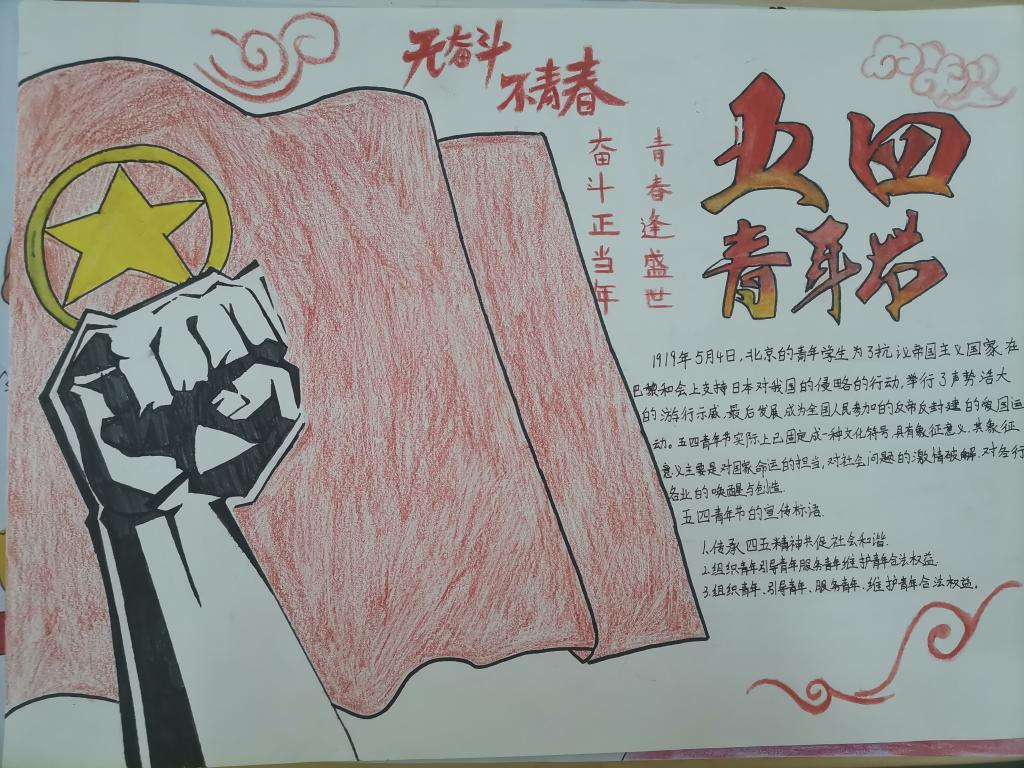 无奋斗
不青春
五四
青年节
青春逢盛世
奋斗正当年
1919年5月4日,北京的青年学生为了抗议帝国主义国家在
巴黎和会上支持日本对我国的侵略的行动,举行了声势浩大
的游行示威,最后发展成为全国人民参加的反帝反封建的爱国运
动。五四青年节实际上已固定成一种文化符号,具有象征意义,其象征
意义主要是对国家命运的担当,对社会问题的激情破解,对各行
各业的唤醒与创造.
五四青年节的宣传标语.
1.传承四五精神共促社会和谐.
2.组织青年引导青年服务青年维护青年合法权益.
3.组织青年、引导青年、服务青年、维护青年合法权益。